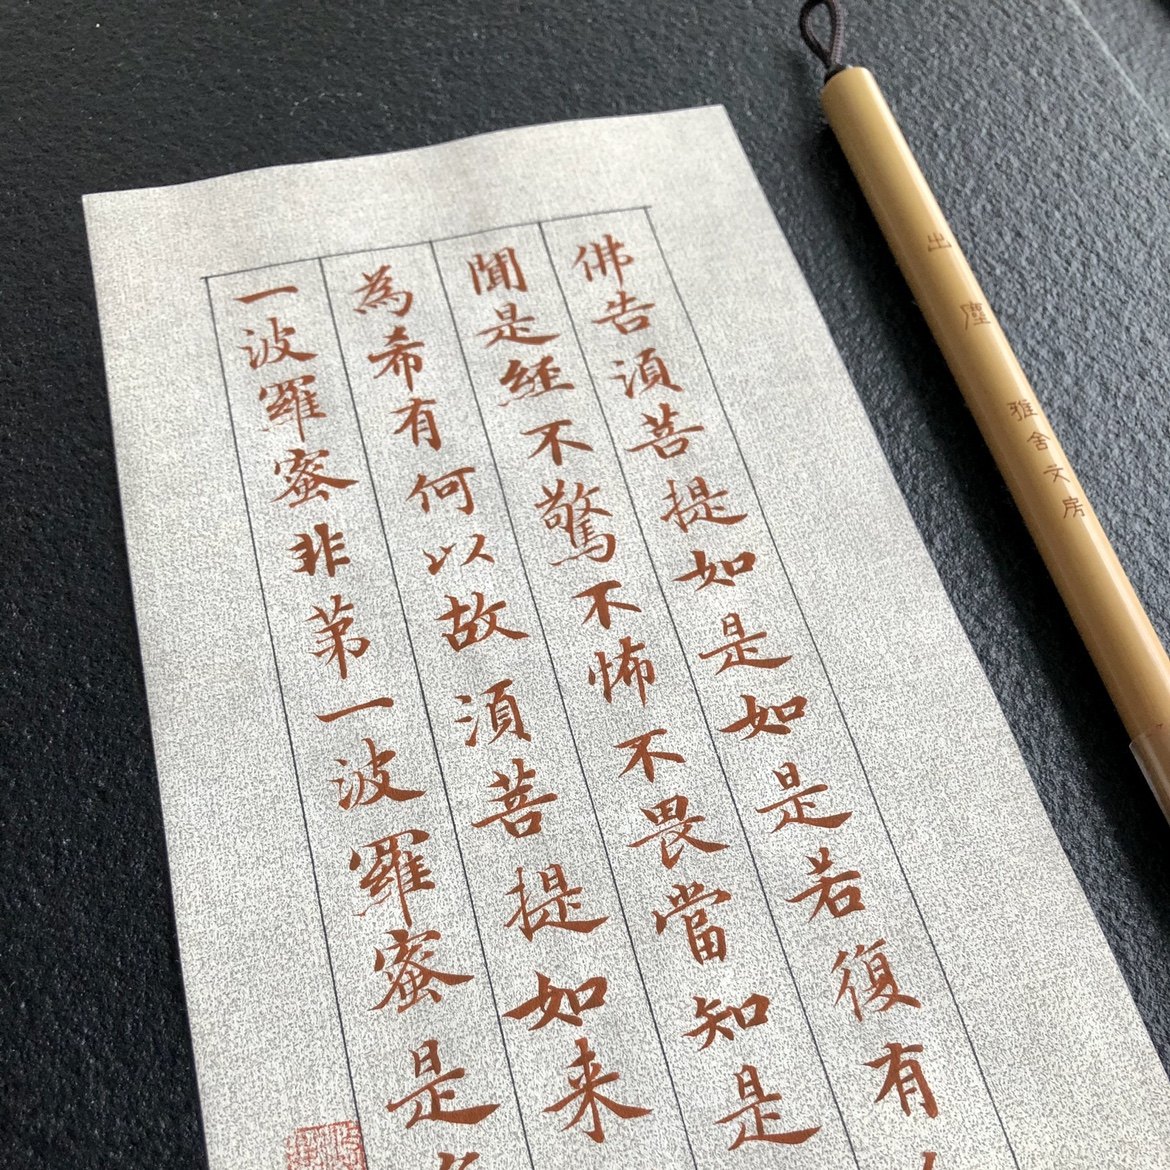 佛告湏菩提如是如是若復有
聞是經不驚不怖不畏當知是
為希有何以故湏菩提如来
一波羅蜜非苐一波羅蜜是
出塵
雅舍文房